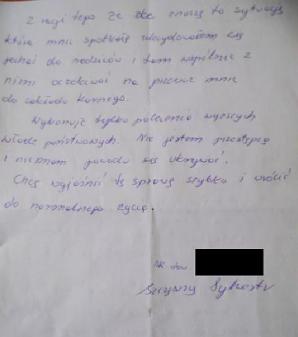 Z racji tego że źle znoszę tą sytuację
która mnie spotkała zdecydowałem się
jechać do rodziców i tam wspólnie z
nimi oczekiwać na przez mnie
do zakładu karnego.
Wykonuję tylko polecenia wyższych
władz państwowych. Nie jestem przestępcą
i nie mam powodu się ukrywać.
Chcę wyjaśnić tę sprawę szybko i wrócić
do normalnego życia.
Seryjny Sylwester